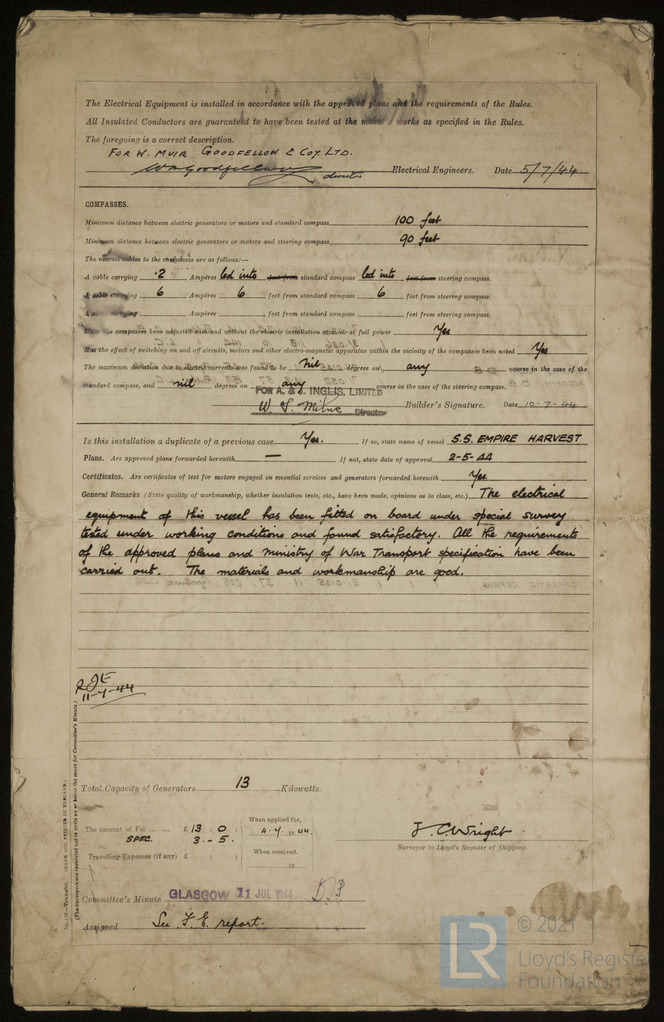 The Electrical Equipment is installed in accordance with the approved plans and the requirements of the Rules.
All Insulated Conductors are guaranteed to have been tested at the maker's works as specified in the Rules.
The foregoing is a correct description.
FOR W. MUIR GOODFELLOW & COY. LTD.
director Electrical Engineers. Date 5/7/44
COMPASSES.
Minimum distance between electric generators or motors and standard compass 100 feet
Minimum distance between electric generators or motors and steering compass 90 feet
The nearest cables to the compasses are as follows:—
A cable carrying .2 Ampères led into feet from standard compass led into feet from steering compass.
A cable carrying 6 Ampères 6 feet from standard compass 6 feet from steering compass.
A cable carrying Ampères feet from standard compass feet from steering compass.
Have the compasses been adjusted with and without the electric installation at work at full power Yes
Has the effect of switching on and off circuits, motors and other electro-magnetic apparatus within the vicinity of the compasses been noted Yes
The maximum deviation due to electric currents was found to be Nil degrees on any course in the case of the
standard compass, and nil degrees on any course in the case of the steering compass.
FOR A. & J. INGLIS, LIMITED
W. S. Milne Director Builder's Signature. Date 10-7-44
Is this installation a duplicate of a previous case Yes. If so, state name of vessel S.S. EMPIRE HARVEST
Plans. Are approved plans forwarded herewith — If not, state date of approval 2-5-44
Certificates. Are certificates of test for motors engaged on essential services and generators forwarded herewith Yes
General Remarks (State quality of workmanship, whether insulation tests, etc., have been made, opinions as to class, etc.) The electrical
equipment of this vessel has been fitted on board under special survey
tested under working conditions and found satisfactory. All the requirements
of the approved plans and Ministry of War Transport specification have been
carried out. The materials and workmanship are good.
11-7-44
Total Capacity of Generators 13 Kilowatts.
The amount of Fee £13 : 0 :
SPEC. 3.-5.
When applied for, 4.7.1944.
Travelling Expenses (if any) £ : :
When received, 19
J. C. Wright
Surveyor to Lloyd's Register of Shipping.
Committee's Minute GLASGOW 11 JUL 1944
Assigned See F.E. report.
(The Surveyors are requested not to write on or below the space for Committee's Minute.)
© 2021
LR
Lloyd's Register
Foundation